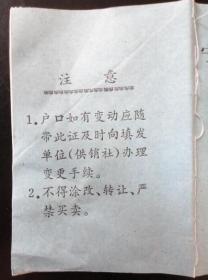 注意
1。户口如有变动应随
带此证及时向填发
单位(供销社)办理
变更手续。
2。不得涂改、转让、严
禁买卖。